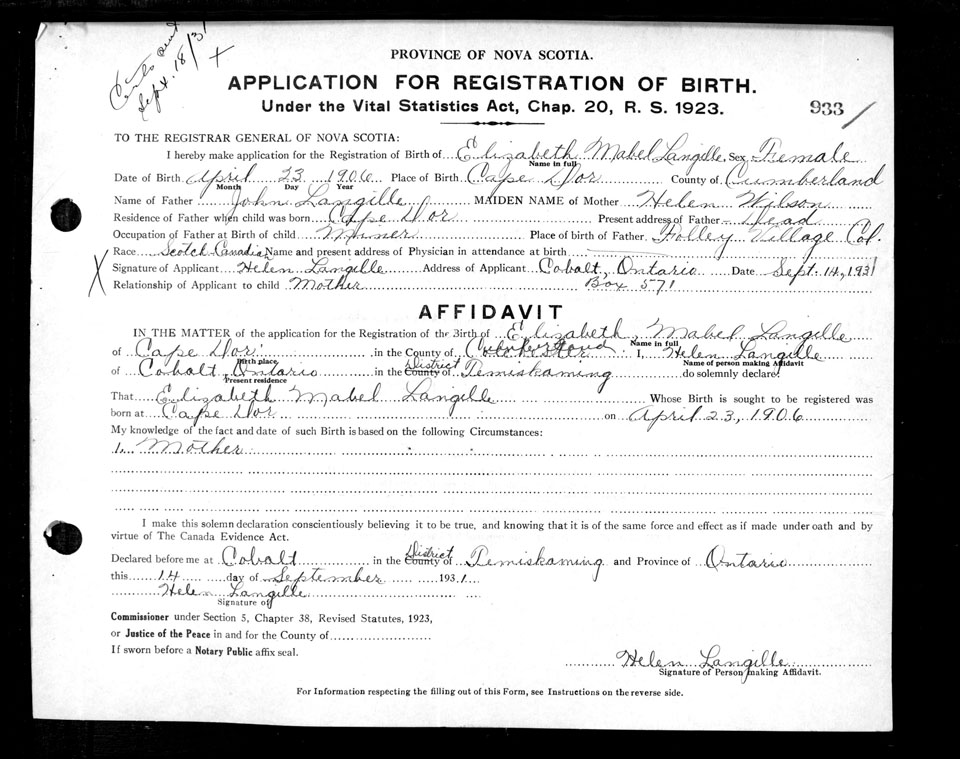 Certs sent
Sept. 18/31
X
PROVINCE OF NOVA SCOTIA.
APPLICATION FOR REGISTRATION OF BIRTH.
Under the Vital Statistics Act, Chap. 20, R. S. 1923.
933 /
TO THE REGISTRAR GENERAL OF NOVA SCOTIA:
I hereby make application for the Registration of Birth of Elizabeth Mabel Langille. Sex Female
Name in full
Date of Birth April 23 1906 Place of Birth Cape Dor County of Cumberland
Month Day Year
Name of Father John Langille MAIDEN NAME of Mother Helen Wilson
Residence of Father when child was born Cape Dor Present address of Father Dead
Occupation of Father at Birth of child Miner Place of birth of Father Folley Village Col.
Race Scotch Canadian Name and present address of Physician in attendance at birth
X Signature of Applicant Helen Langille Address of Applicant Cobalt, Ontario Date Sept. 14, 1931
Relationship of Applicant to child Mother Box 571
AFFIDAVIT
IN THE MATTER of the application for the Registration of the Birth of Elizabeth, Mabel Langille
Name in full
of Cape Dor in the County of Cumberland I, Helen Langille
Birth place Name of person making Affidavit
of Cobalt, Ontario in the County of District Temiskaming do solemnly declare:
Present residence
That Elizabeth Mabel Langille Whose Birth is sought to be registered was
born at Cape Dor on April 23, 1906
My knowledge of the fact and date of such Birth is based on the following Circumstances:
1. Mother
I make this solemn declaration conscientiously believing it to be true, and knowing that it is of the same force and effect as if made under oath and by
virtue of The Canada Evidence Act.
Declared before me at Cobalt in the County of District Temiskaming and Province of Ontario
this 14 day of September 1931.
Helen Langille
Signature of
Commissioner under Section 5, Chapter 38, Revised Statutes, 1923,
or Justice of the Peace in and for the County of
If sworn before a Notary Public affix seal.
Helen Langille
Signature of Person making Affidavit.
For Information respecting the filling out of this Form, see Instructions on the reverse side.